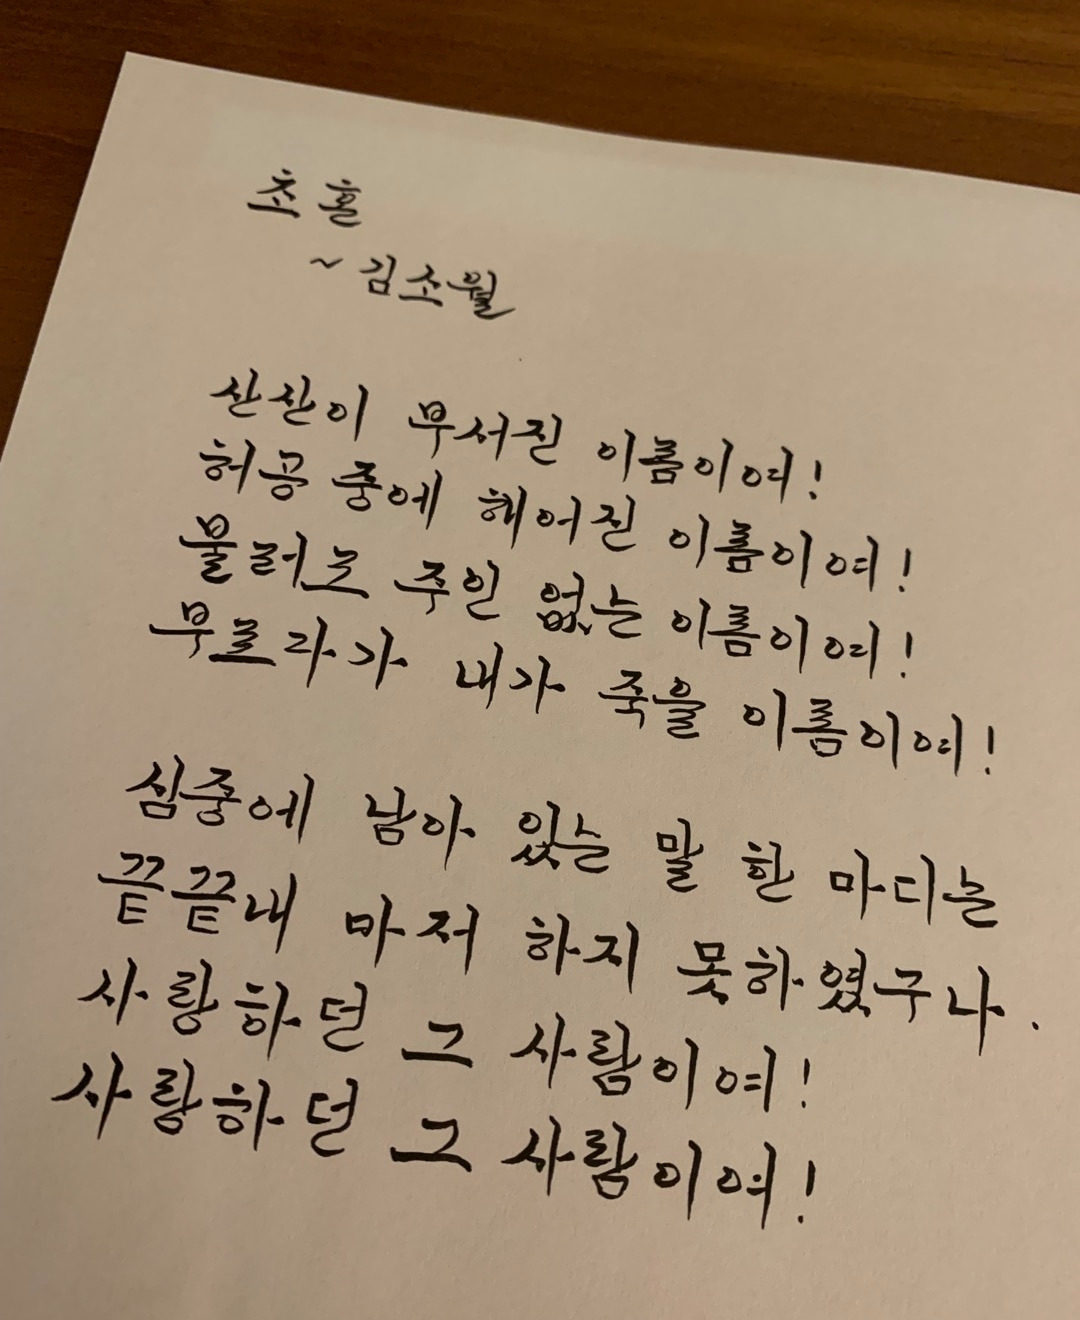 초혼
~김소월
산산이 부서진 이름이여!
허공 중에 헤어진 이름이여!
불러도 주인 없는 이름이여!
부르다가 내가 죽을 이름이여!
심중에 남아 있는 말 한 마디는
끝끝내 마저 하지 못하였구나.
사랑하던 그 사람이여!
사랑하던 그 사람이여!